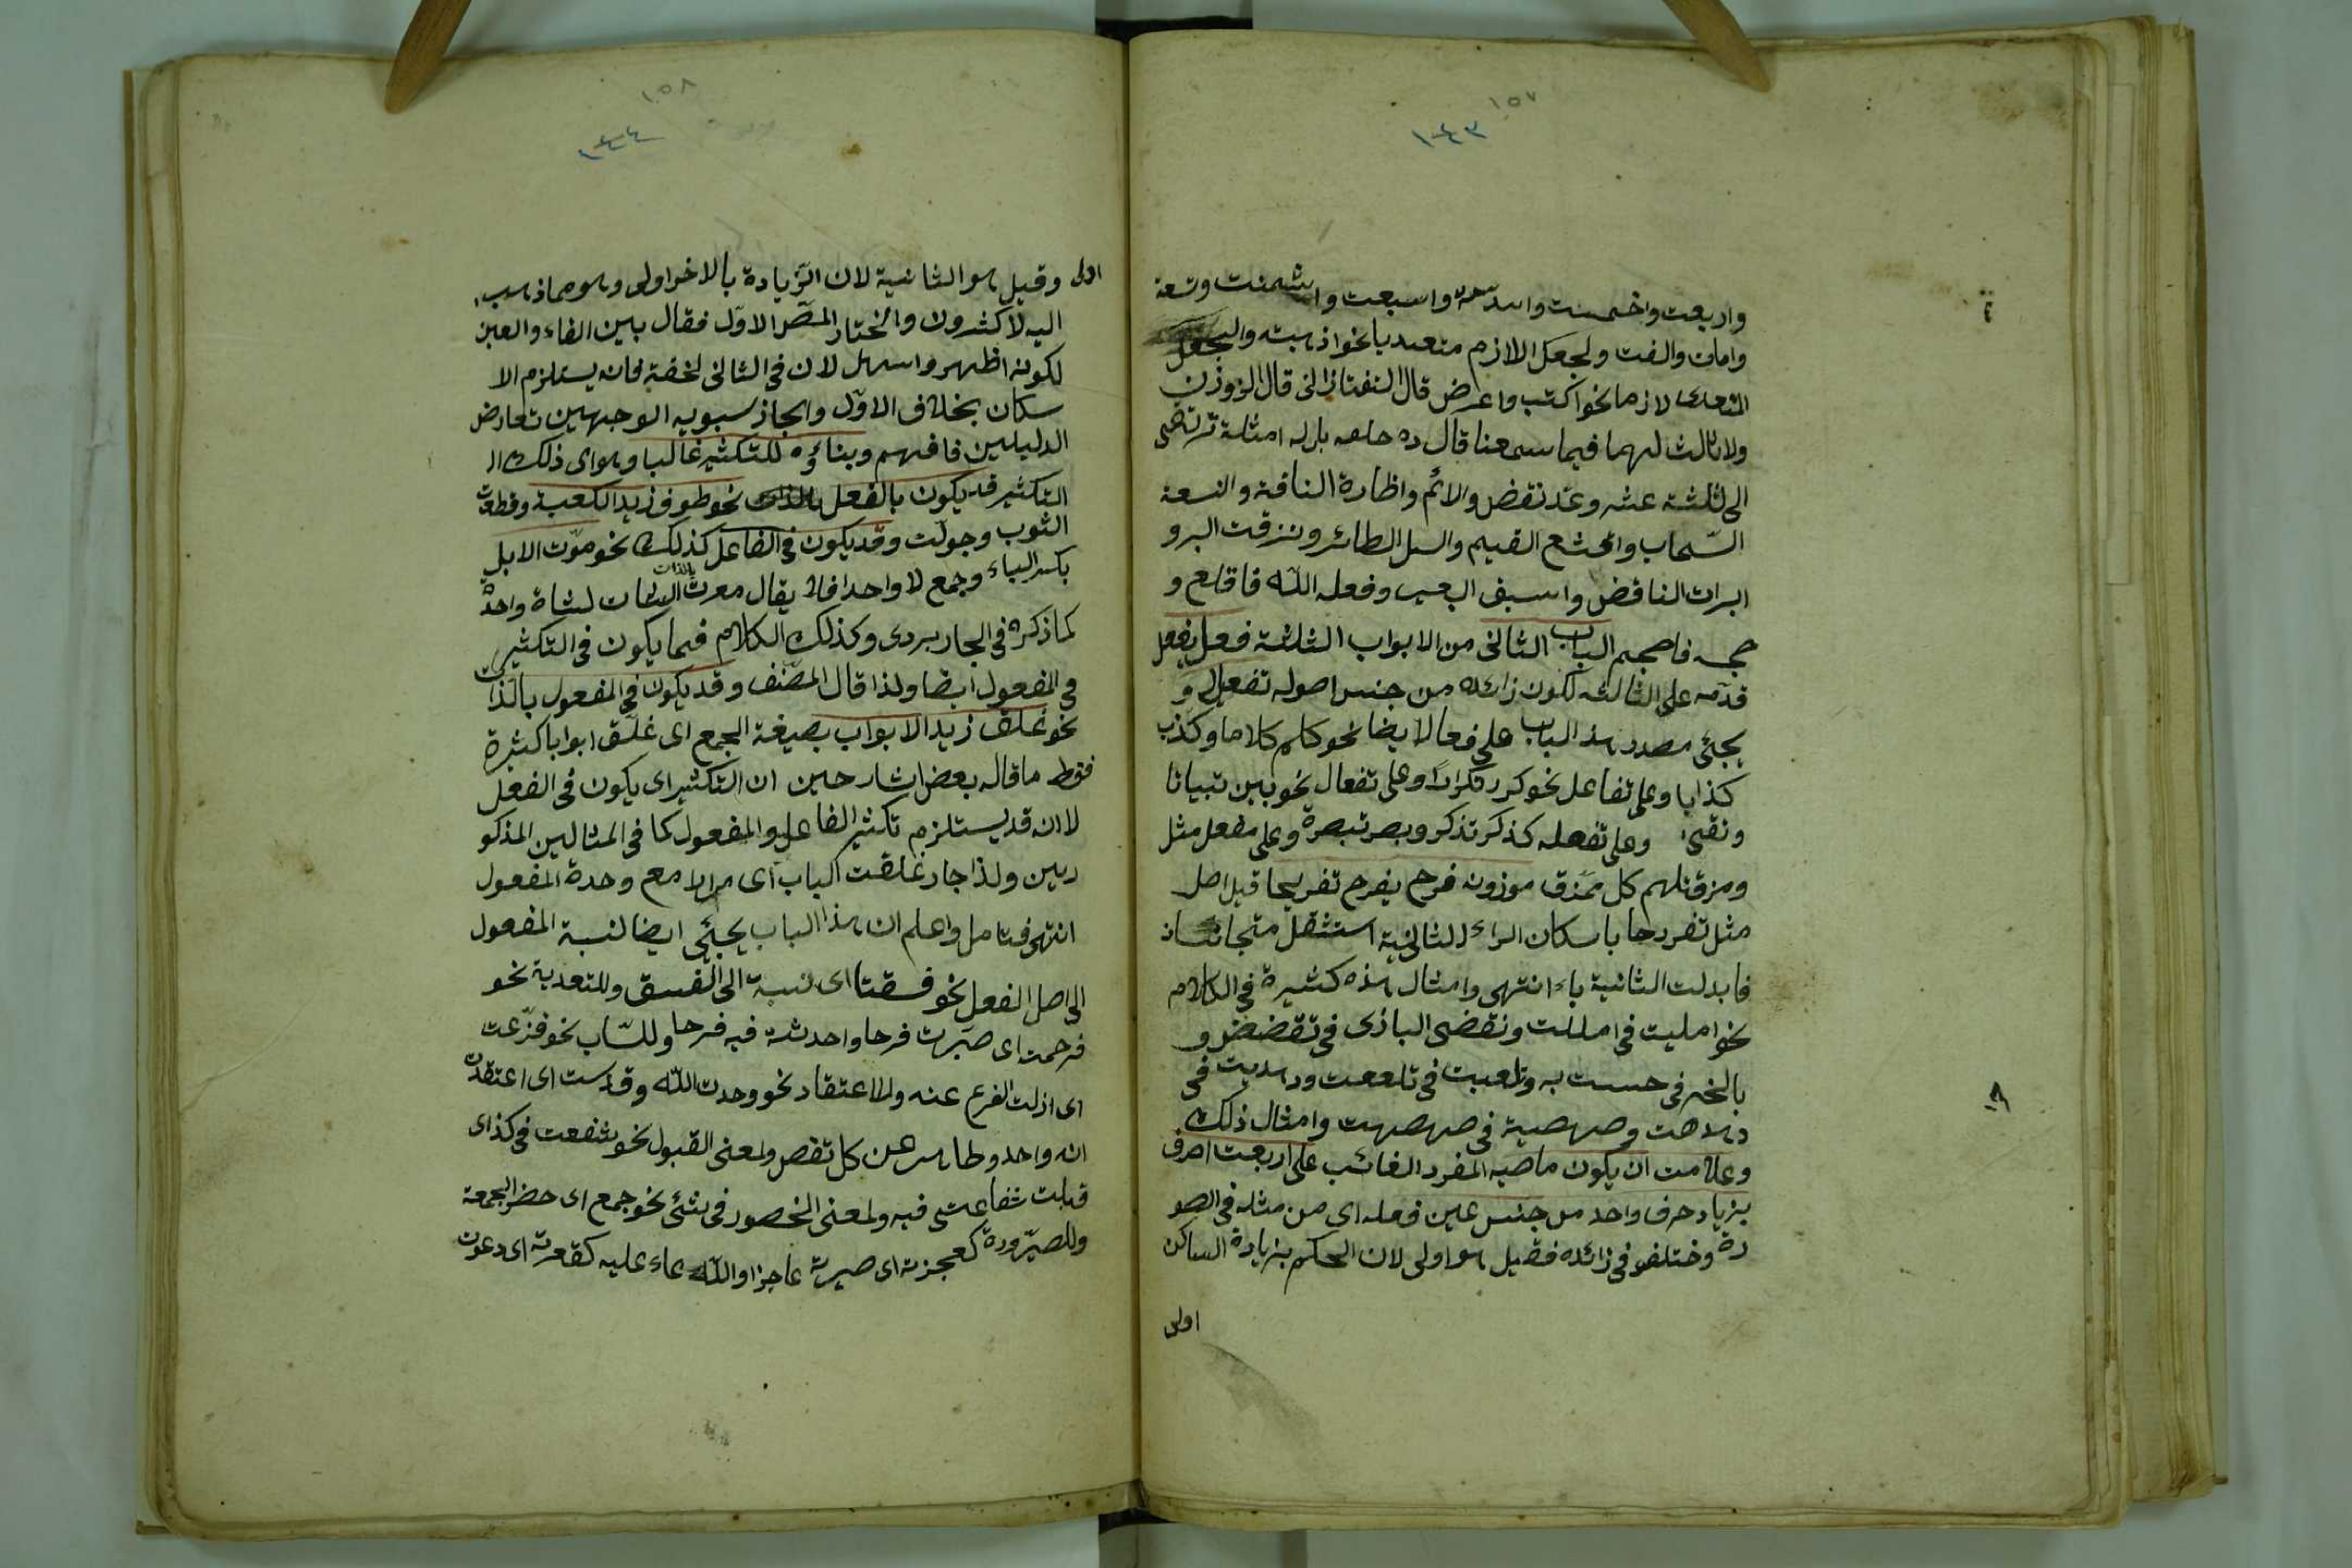 ١٥٧
١٤٣
واربعت واخمست واسدست واسبعت واثمنت وتسعة
وامات والفت ولجعل اللازم متعديا نحو اذهبته والجعل
المتعدى لازما نحو اكتب واعرض قال التفتازانى قال الزوزنى
ولا ثالث لهما فيما سمعنا قال ده بل له امثلة ترتقى
الى ثلثة عشر وعد نقض والائم واظارة الناقة والنسعة
السّحاب وانقشع القيم وانسل الطائر ونزقت البر و
ابرات الناقض واسبق البعير وفعله اللّه فاقلع و
فاحجم الباب الثانى من الابواب الثلثة فعل يفعل
قدّمه على الثالثه لكون زائده من جنس اصوله تفعيل و
يجئى مصدر هذا الباب على فعالا ايضا نحو كلم كلاما وكذب
كذابا وعلى تفاعل نحو كرر تكرارًا وعلى تفعال نحو بين تبيانا
وعلى تفعله كذكر تذكر وبصر تبصرة وعلى مفعل مثل
ومزقناهم كل ممزق موزونه فرح يفرح تفريحا قيل اصل
مثل تفررحا باسكان الراء الثانية استثقل متجانسان
فابدلت الثانية ياء انتهى وامثال هذه كثيرة فى الكلام
نحو امليت فى امللت وتقضى البازى فى تقضض و
بالخبر فى حسست به وتلعيت فى تلععت ودهديت فى
دهدهت وصهصيه فى صهصهت وامثال ذلك
وعلامت ان يكون ماضيه المفرد الغائب على اربعت احرف
بزياد حرف واحد من جنس عين فعله اى من مثله فى الصو
رة وختلفو فى زائده فقيل هو اولى لان الحكم بزيادة الساكن
اولى
١٥٨
١٤٤
اولى وقيل هو الثانية لان الزّيادة بالاخر اولى وهو مما ذهب
اليه لاكثرون واختار المصّ الاوّل فقال بين الفاء والعين
لكونه اظهر واسهل لان فى الثانى لخفة فانه يستلزم الا
سكان بخلاف الاوّل واجاز سبويه الوجهين تعارض
الدليلين فافهم وبناؤه للتكثير غالبا وهو اى ذلك ا
التكثير قد يكون بالفعل بالذات نحو طوف زيد الكعبة وقطعت
الثوب وجولت وقد يكون فى الفاعل كذلك نحو موّت الابل
بكسر الباء وجمع لا واحد فلا يقال موت بالذات لشاة واحدة
كما ذكره فى الجاربردى وكذلك الكلام فيما يكون فى التكثير
فى المفعول ايضا ولذا قال المصّنف وقد يكون فى المفعول بالذات
نحو غلّق زيد الابواب بصيغة الجمع اى غلّق ابوابا كثيرة
فقط ما قاله بعض اشارحين ان التكثير اى يكون فى الفعل
لا انه قد يستلزم تكثير الفاعل والمفعول كما فى المثالين المذكو
رين ولذا جاز غلقت الباب اى مرارا مع وحدة المفعول
انتهى فتامل واعلم ان هذا الباب يجئى ايضا لنسبة المفعول
الى اصل الفعل نحو فسقته اى نسبة الى الفسق وللتعدية نحو
فرحت اى صيّرت فرحا واحدثت فيه فرحا وللسّلب نحو فزّعت
اى ازلت الفزع عنه وللاعتقاد نحو وحدت اللّه وقدست اى اعتقدت
انه واحد وطاهر عن كل نقص ولمعنى القبول نحو شفعت فى كذا اى
قبلت شفاعتى فيه ولمعنى الحضور فى شئى نحو جمع اى حضر الجمعة
وللصيّرورة كعجزته اى صيرته عاجزا واللّدعاء عليه كعقرته اى دعوت